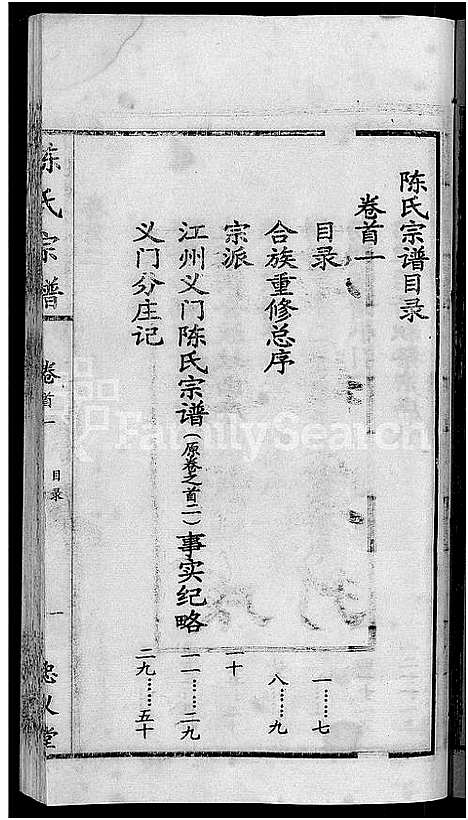 陈氏宗谱目录
卷首一
目录 一……七
合族重修总序 八……九
宗派 一十
江州义门陈氏宗谱（原卷之首二）事实纪略 一一……二九
义门分庄记 二九……五十
陈氏宗谱
卷首一
目录
一
忠义堂
FamilySearch